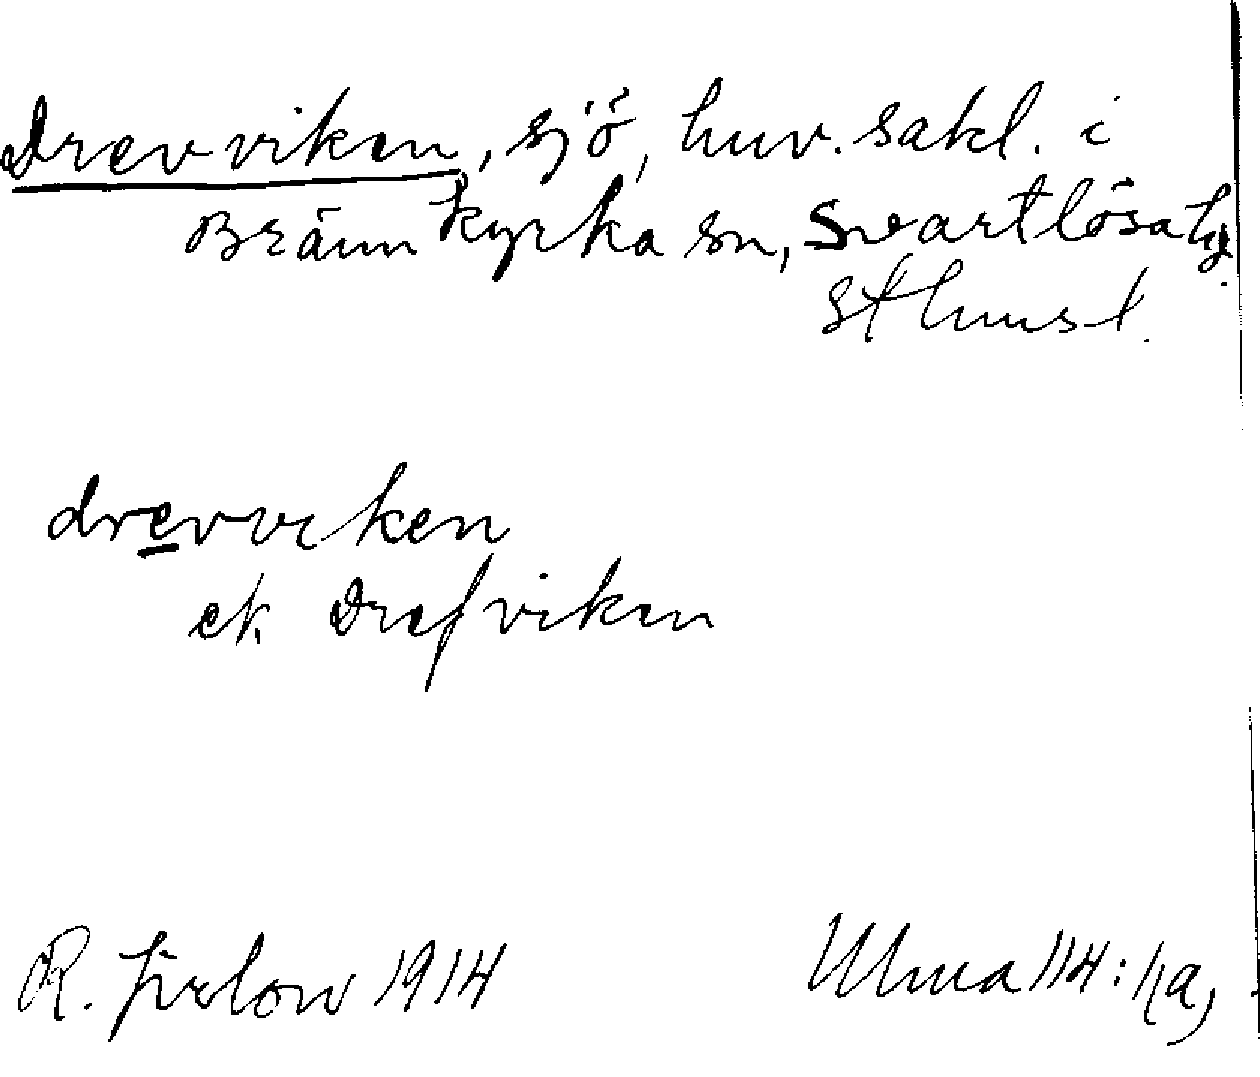 Drevviken, sjö, huv.sakl. i
Brännkyrka sn, Svartlösa hd.
Sthmsl.
drevviken
ek. Drefviken
R. Jirlow 1914
Ulma 114:1,a,